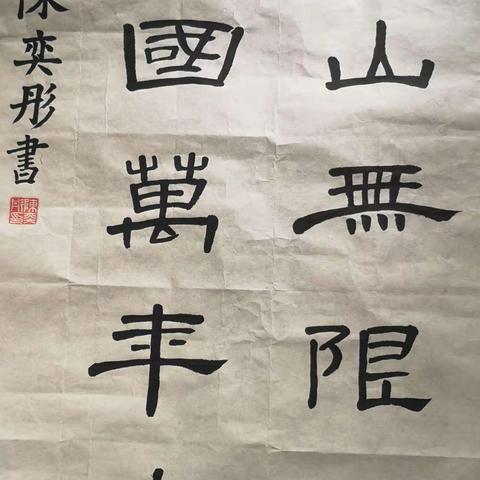 山無限
國萬年
陳奕彤書